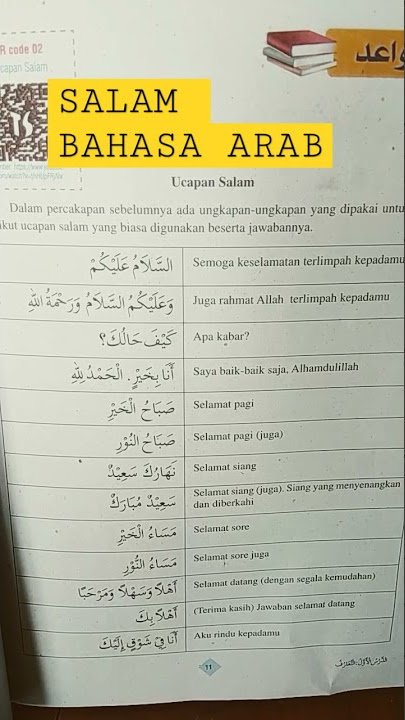 R code 02
capan Salam
واعد
SALAM
BAHASA ARAB
Ucapan Salam
Dalam percakapan sebelumnya ada ungkapan-ungkapan yang dipakai untu
ikut ucapan salam yang biasa digunakan beserta jawabannya.
السَّلَامُ عَلَيْكُمْ Semoga keselamatan terlimpah kepadamu
وَعَلَيْكُمُ السَّلَامُ وَرَحْمَةُ اللهِ Juga rahmat Allah terlimpah kepadamu
كَيْفَ حَالُكَ؟ Apa kabar?
أَنَا بِخَيْرٍ. الْحَمْدُ لِلهِ Saya baik-baik saja, Alhamdulillah
صَبَاحُ الْخَيْرِ Selamat pagi
صَبَاحُ النُّوْرِ Selamat pagi (juga)
نَهَارُكَ سَعِيْدٌ Selamat siang
سَعِيْدٌ مُبَارَكٌ Selamat siang (juga). Siang yang menyenangkan
dan diberkahi
مَسَاءُ الْخَيْرِ Selamat sore
مَسَاءُ النُّوْرِ Selamat sore juga
أَهْلًا وَسَهْلًا وَمَرْحَبًا Selamat datang (dengan segala kemudahan)
أَهْلًا بِكَ (Terima kasih) Jawaban selamat datang
أَنَا فِيْ شَوْقٍ إِلَيْكَ Aku rindu kepadamu
11
الدَّرْسُ الْأَوَّلُ: التَّعَارُفُ